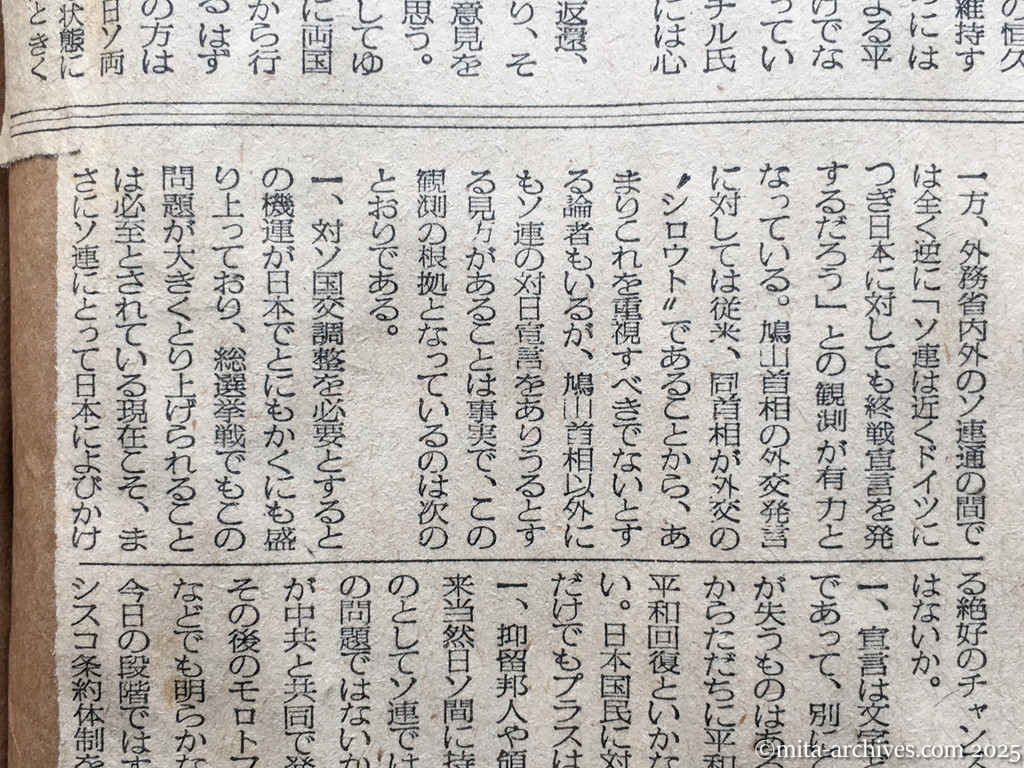 の恒久
維持す
うには
よる平
けでな
ってい
チル氏
には心
返還、
り、そ
意見を
思う。
してゆ
に両国
から行
るはず
の方は
日ソ両
状態に
ときく
一方、外務省内外のソ連通の間で
は全く逆に「ソ連は近くドイツに
つぎ日本に対しても終戦宣言を発
するだろう」との観測が有力と
なっている。鳩山首相の外交発言
に対しては従来、同首相が外交の
〃シロウト〃であることから、あ
まりこれを重視すべきでないとす
る論者もいるが、鳩山首相以外に
もソ連の対日宣言をありうるとす
る見方があることは事実で、この
観測の根拠となっているのは次の
とおりである。
一、対ソ国交調整を必要とすると
の機運が日本でとにもかくにも盛
り上っており、総選挙戦でもこの
問題が大きくとり上げられること
は必至とされている現在こそ、ま
さにソ連にとって日本によびかけ
る絶好のチャンス
はないか。
一、宣言は文字と
であって、別に
が失うものはあ
からただちに平和
平和回復といかな
い。日本国民に対
だけでもプラスは
一、抑留邦人や領
来当然日ソ間に持
のとしてソ連では
の問題ではないか
が中共と共同で発
その後のモロトフ
などでも明らかな
今日の段階ではサ
シスコ条約体制を
©mita-archives.com 2025